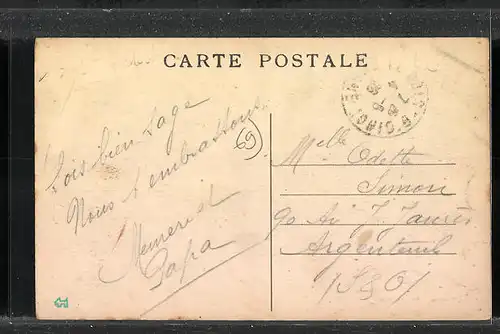 CARTE POSTALE
Sois bien sage
Nous t'embrassons
Papa
69
Melle Odette
Simon
90 Av J. Jaurès
Argenteuil
(S & O)